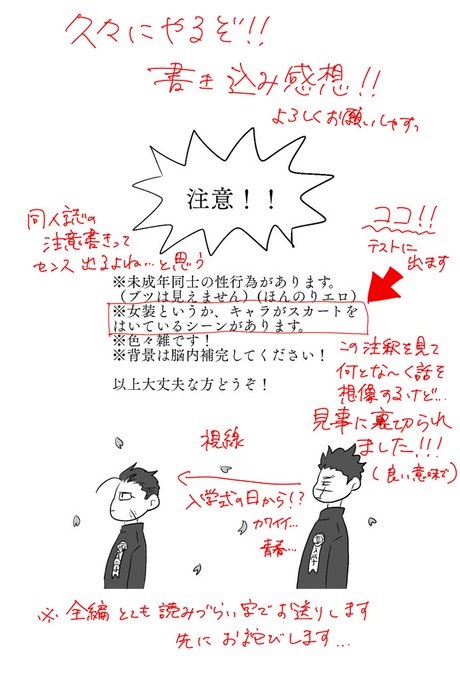 久々にやるぞ!!
書き込み感想!!
よろしくお願いしやすっ
注意！！
同人誌の
注意書きって
センス出るよね…と思う
ココ!!
テストに
出ます
※未成年同士の性行為があります。
（ブツは見えません）（ほんのりエロ）
※女装というか、キャラがスカートを
はいているシーンがあります。
※色々雑です！
※背景は脳内補完してください！
以上大丈夫な方どうぞ！
この注釈を見て
何となーく話を
想像するけど…
見事に裏切られ
ました!!!
(良い意味で)
視線
入学式の日から!?
カワイイ…
青春…
※ 全編とても読みづらい字でお送りします
先にお詫びします…